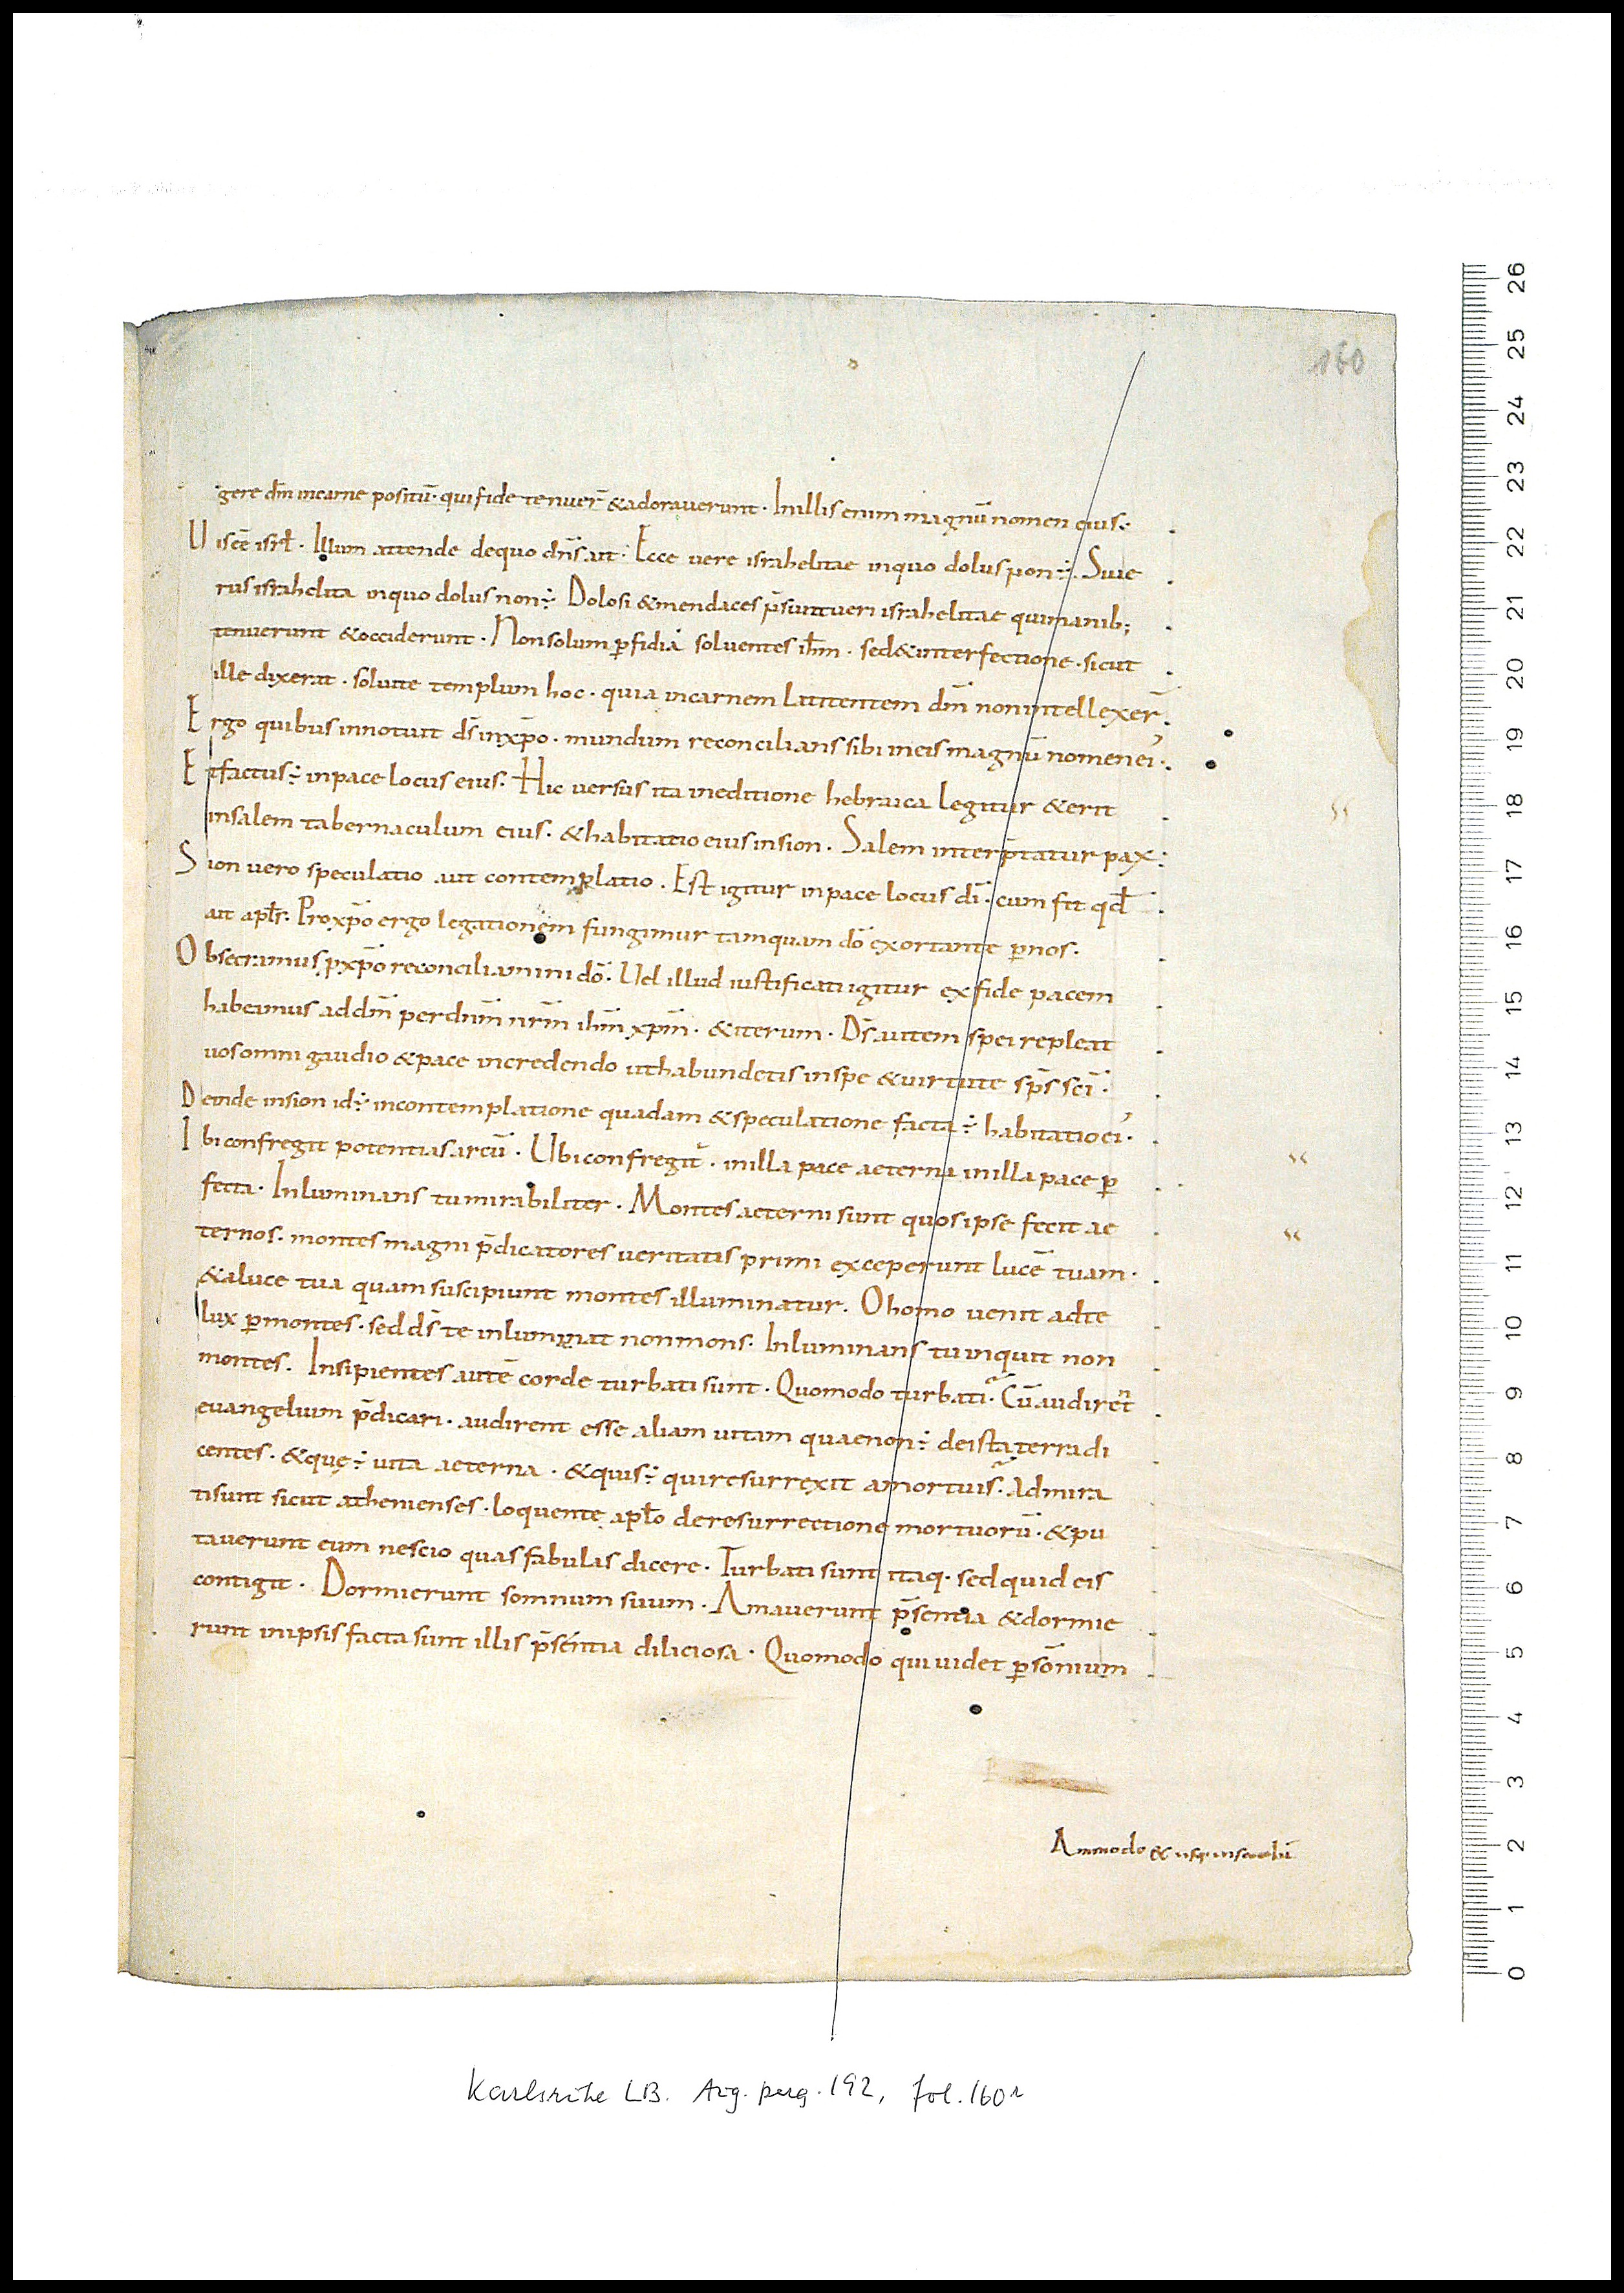 160
gere dm̄ incarne positū· qui fide tenuer̄ & adoraverunt· Inillis enim magnū nomen eius:
Uiscē isrl̄· Illum attende dequo dn̄s ait· Ecce vere israhelitae inquo dolus non÷ Siue
rus israhelita inquo dolus non÷ Dolosi & mendaces p̄sunt veri israhelitae qui manib;
tenuerunt & occiderunt· Non solum ꝑfidia solventes ihm̄· sed & interfectione· sicut
ille dixerat· solvite templum hoc· quia incarnem latitentem dm̄ non intellexer̄·
Ergo quibus innotuit ds̄ inxp̄o· mundum reconcilians sibi ineis magnū nomen ei᾽·
Et factus÷ inpace locus eius: Hic versus ita ineditione hebraica legitur & erit
insalem tabernaculum eius· & habitatio eius insion· Salem interp̄tatur pax:
Sion vero speculatio aut contemplatio· Est igitur inpace locus dī· cum fit qd̄
ait apl̄s· Pro xp̄o ergo legationem fungimur tamquam dō exortante ꝑnos·
Obsecramus pxp̄o reconciliamini dō· Vel illud iustificati igitur exfide pacem
habeamus ad dm̄ per dn̄m nr̄m ihm̄ xp̄m· & iterum· Ds̄ autem spei repleat
vos omni gaudio & pace incredendo uthabundetis inspe & virtute sp̄s sc̄i·
Deinde insion id÷ incontemplatione quadam & speculatione facta÷ habitatio ei᾽·
Ibi confregit potentias arcū· Ubi confregit· inilla pace aeterna inilla pace ꝑ
fecta· Inluminans tu mirabiliter· Montes aeterni sunt quos ipse fecit ae
ternos· montes magni p̄dicatores veritatis primi exceperunt lucē tuam·
& aluce tua quam suscipiunt montes illuminatur· O homo venit adte
lux ꝑmontes· sed ds̄ te inluminat non mons· Inluminans tu inquit non
montes· Insipientes autē corde turbati sunt· Quomodo turbati· Cū audiren̄t
evangelium p̄dicari· audirent esse aliam vitam quae non÷ deista terra di
centes· & quę÷ vita aeterna· & quis÷ qui resurrexit amortuis· Admira
ti sunt sicut athenienses· loquente apl̄o deresurrectione mortuorū· & pu
taverunt eum nescio quas fabulas dicere· Turbati sunt itaq· sed quid eis
contigit· Dormierunt somnum suum· Amaverunt p̄sentia & dormie
runt inipsis facta sunt illis p̄sentia diliciosa· Quomodo qui videt ꝑ somnium
Ammodo & usq; insaeculū
Karlsruhe LB. Aug. perg. 192, fol. 160r
0 1 2 3 4 5 6 7 8 9 10 11 12 13 14 15 16 17 18 19 20 21 22 23 24 25 26